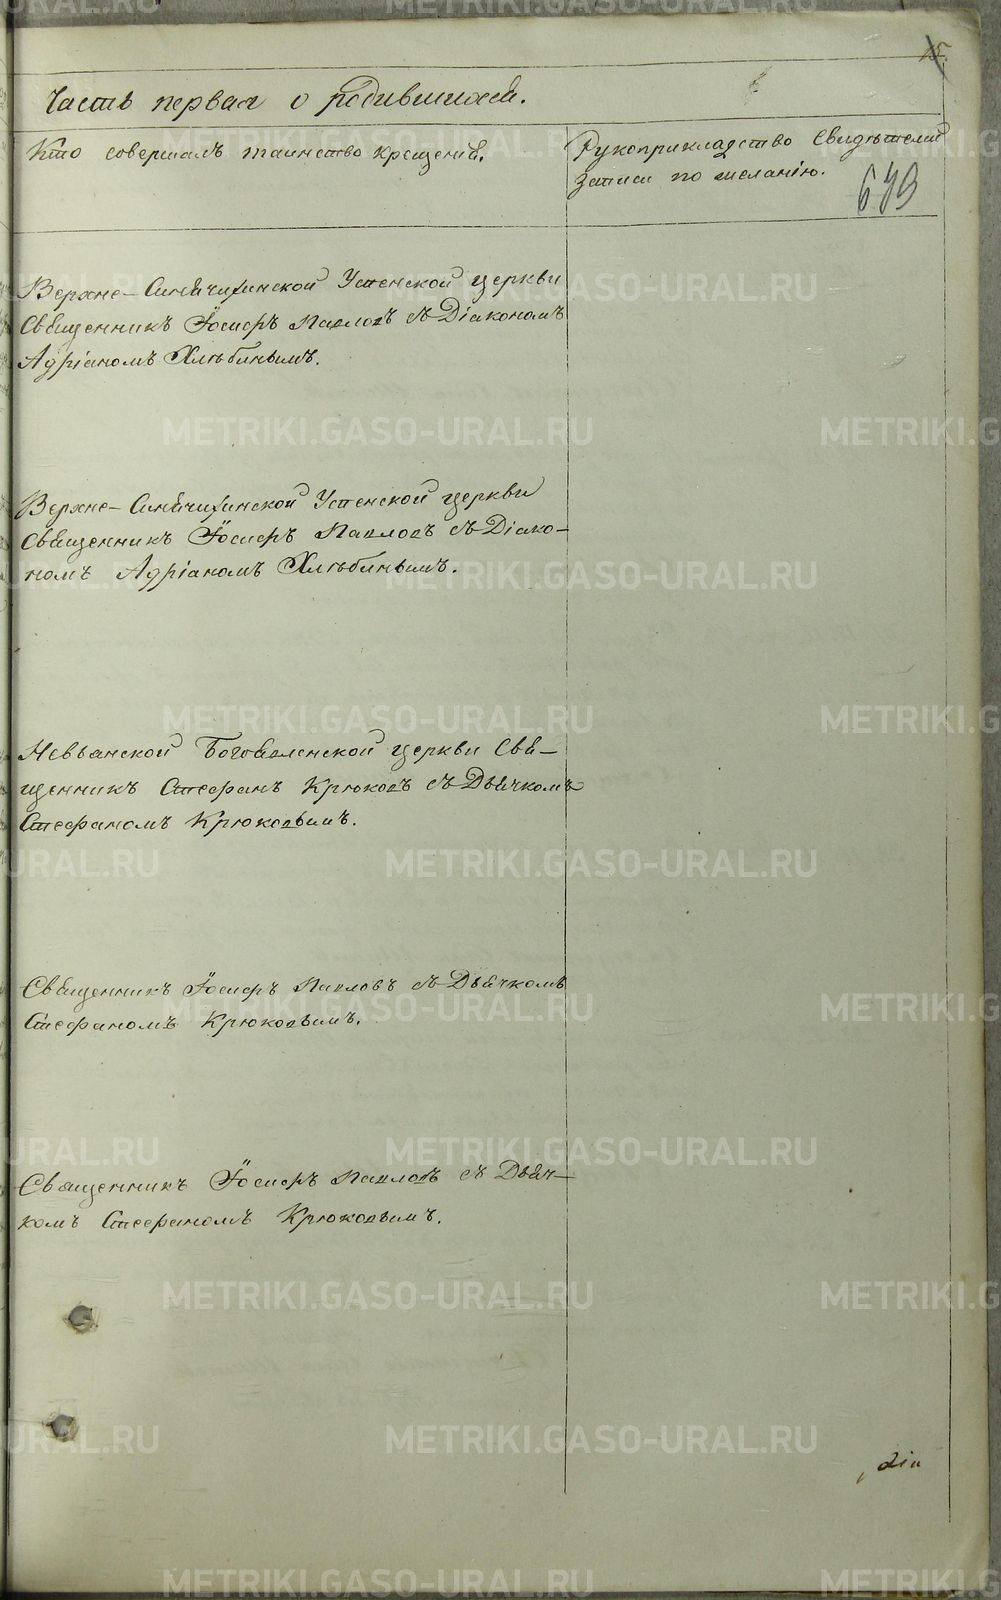 15.
Часть первая о родившихся.
Кто совершалъ таинство крещенія.
Рукоприкладство свидѣтелей
записи по желанію.
679
Верхне-Синячихинской Успенской церкви
Священникъ Іосифъ Павловъ съ Діакономъ
Адріаномъ Хлѣбинымъ.
Верхне-Синячихинской Успенской церкви
Священникъ Іосифъ Павловъ съ Діако-
номъ Адріаномъ Хлѣбинымъ.
Невьянской Богоявленской церкви Свя-
щенникъ Стефанъ Крюковъ съ Дьячкомъ
Стефаномъ Крюковымъ.
Священникъ Іосифъ Павловъ съ Дьячкомъ
Стефаномъ Крюковымъ.
Священникъ Іосифъ Павловъ съ Дьяч-
комъ Стефаномъ Крюковымъ.
METRIKI.GASO-URAL.RU